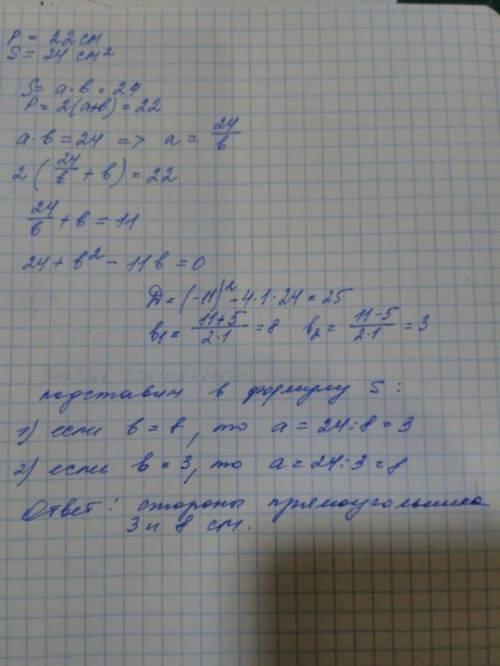 P = 22 см
S = 24 см²
S = a · в = 24
P = 2(a+в) = 22
a · в = 24 => a = 24/в
2 (24/в + в) = 22
24/в + в = 11
24 + в² - 11в = 0
Д = (-11)² - 4·1·24 = 25
в₁ = (11+5)/(2·1) = 8 в₂ = (11-5)/(2·1) = 3
подставим в формулу S:
1) если в = 8, то a = 24:8 = 3
2) если в = 3, то a = 24:3 = 8
Ответ: стороны прямоугольника
3 и 8 см.